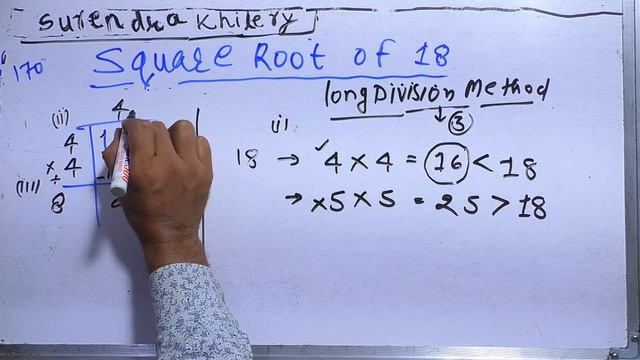 Surendra Khilery
170 Square Root of 18
long Division Method
↓ ③
(i)
18 → ✓4 × 4 = 16 < 18
→ ×5 × 5 = 25 > 18
(ii) 4
4 1
× 4
(iii) +
8 2